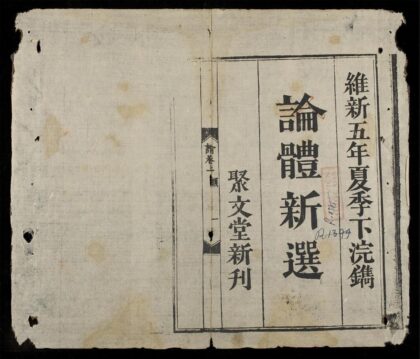 維新五年夏季下浣鐫
論體新選
聚文堂新刊
論卷上
R.1399